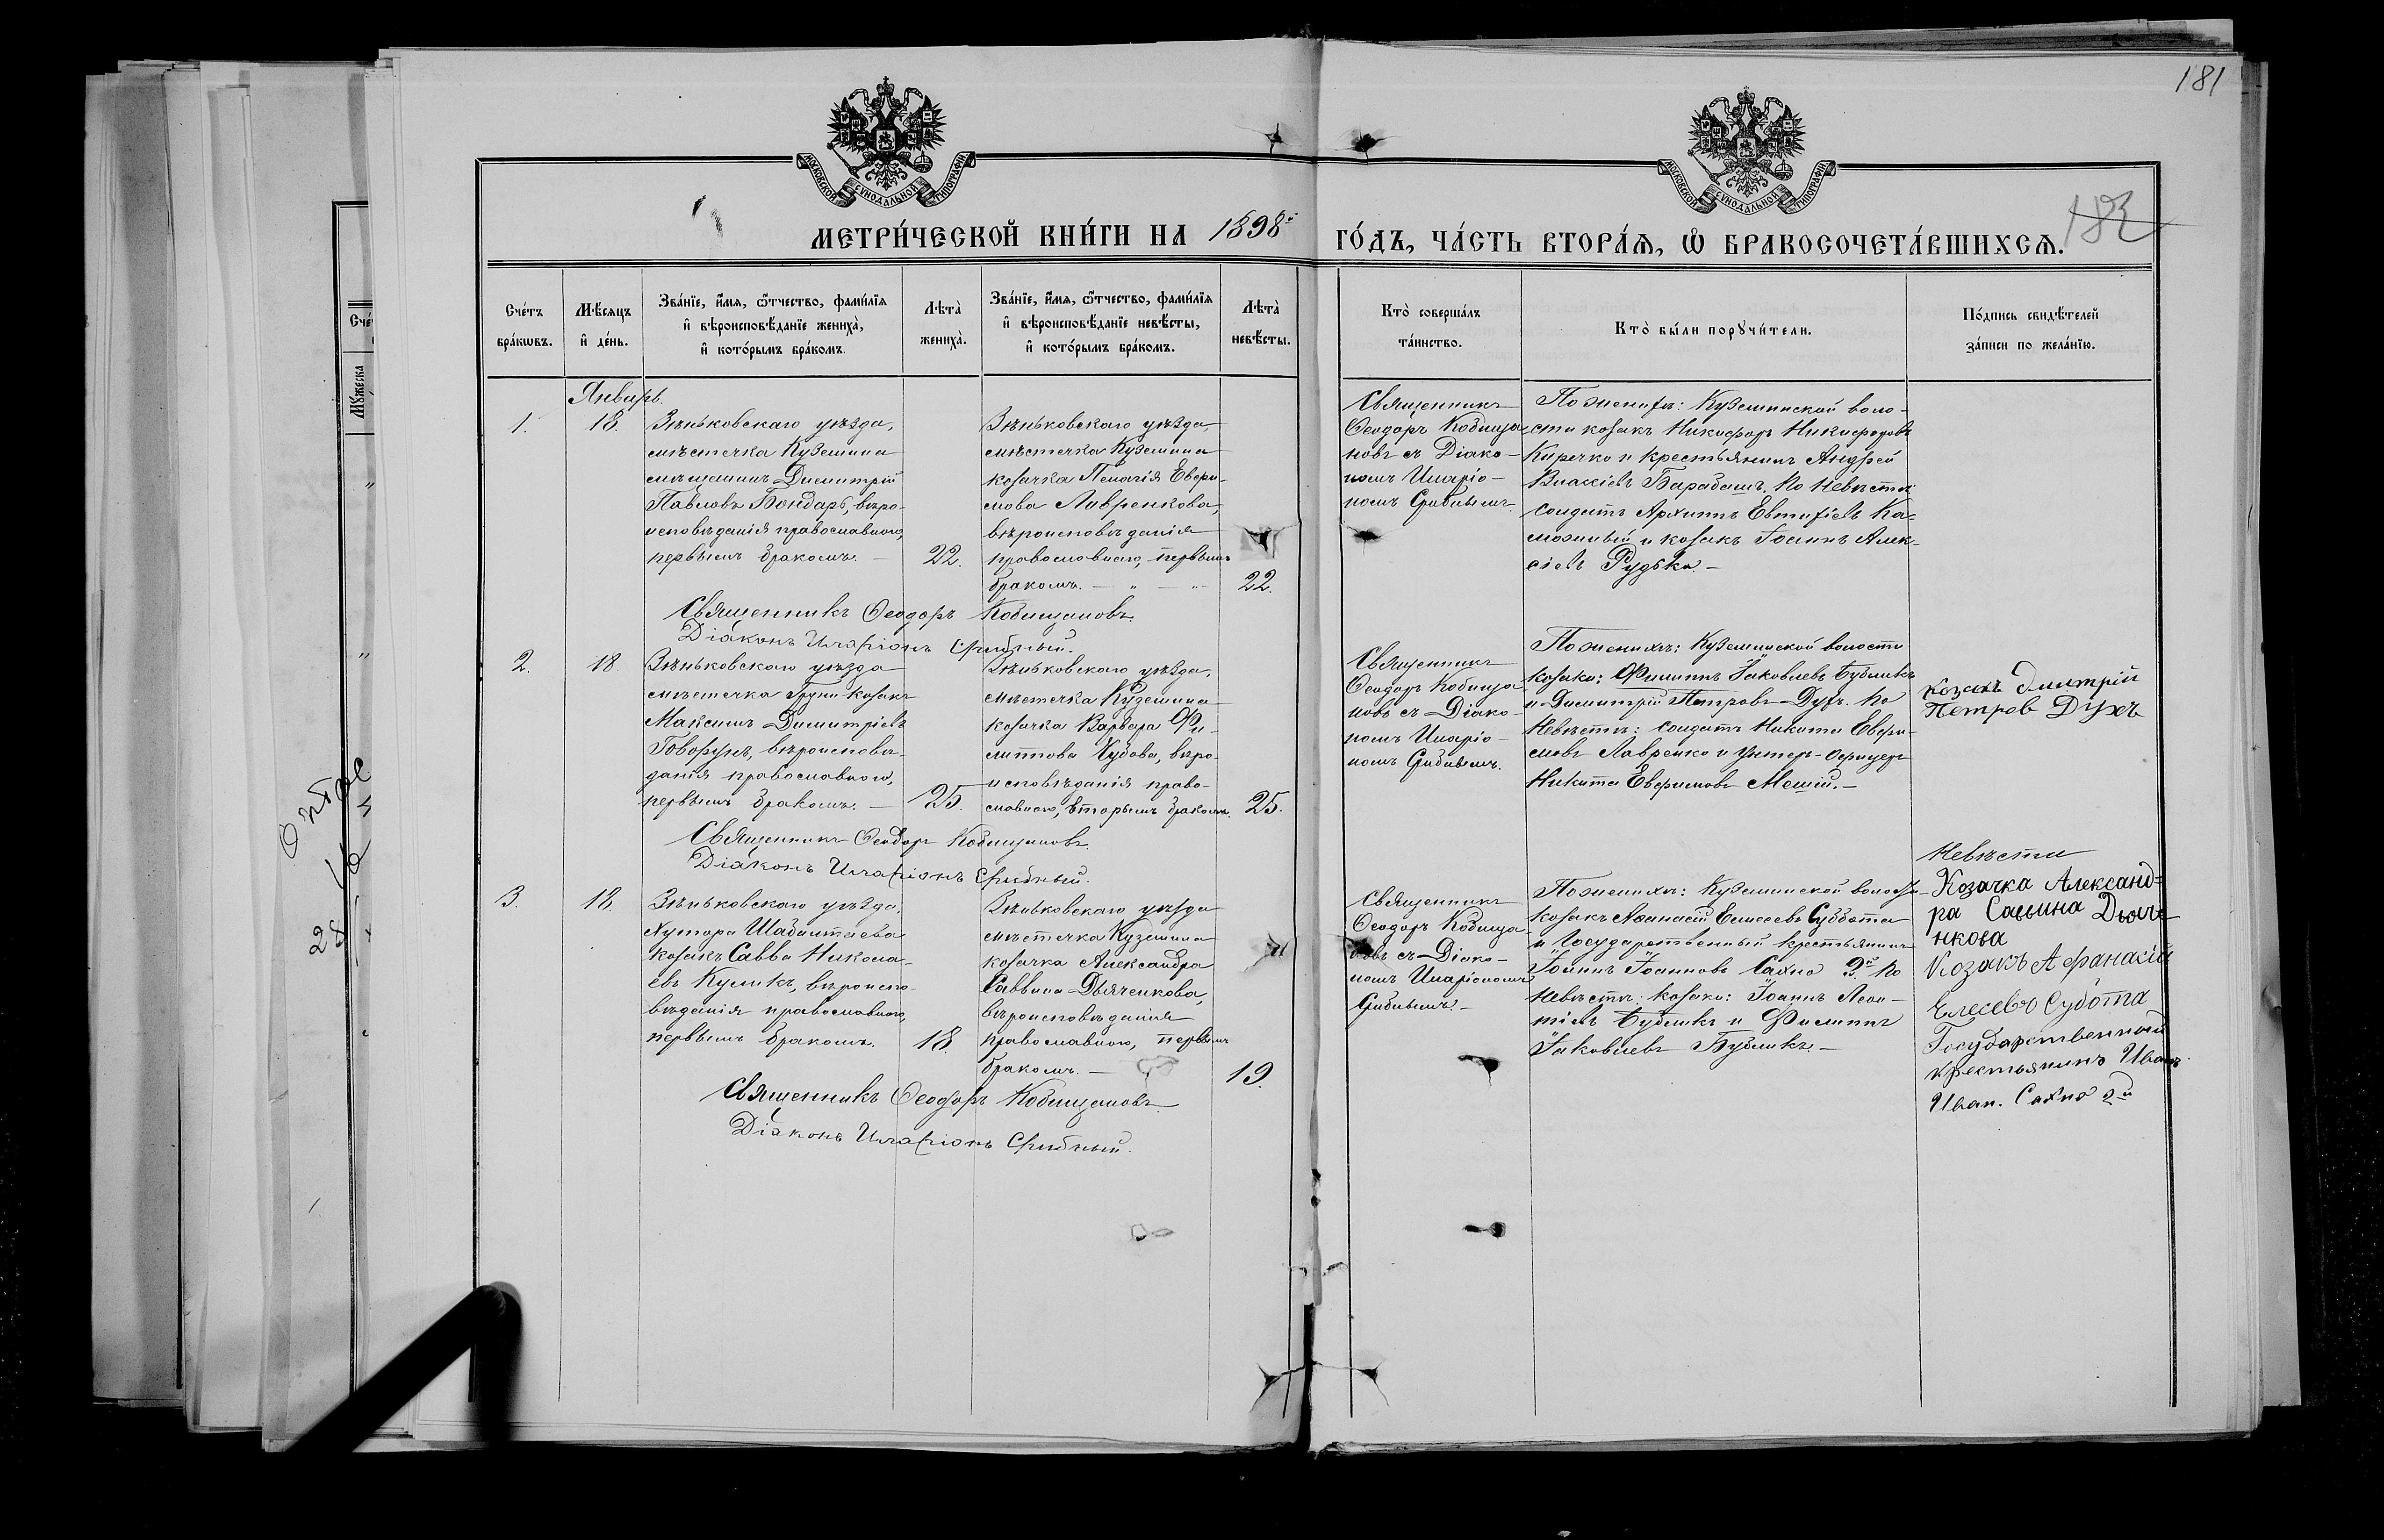 181
182
МОСКОВСКОЙ СѴНОДАЛЬНОЙ ТИПОГРАФІИ
МОСКОВСКОЙ СѴНОДАЛЬНОЙ ТИПОГРАФІИ
МЕТРИ́ЧЕСКОЙ КНИ́ГИ НА 1898й ГО́ДЪ, ЧА́СТЬ ВТОРА́Я, Ѽ БРАКОСОЧЕТА́ВШИХСЯ.
Сче́тъ
бра́кѡвъ.
Мѣ́сяцъ
и҆ де́нь.
Зва́нїе, и҆́мя, ѻ҆́тчество, фами́лїя
и҆ вѣроисповѣ́данїе жениха̀,
и҆ кото́рымъ бра́комъ.
Лѣта̀
жениха̀.
Зва́нїе, и҆́мя, ѻ҆́тчество, фами́лїя
и҆ вѣроисповѣ́данїе невѣ́сты,
и҆ кото́рымъ бра́комъ.
Лѣта̀
невѣ́сты.
Кто̀ соверша́лъ
та́инство.
Кто̀ бы́ли порꙋчи́тели.
По́дпись свидѣ́телей
за́писи по жела́нїю.
Январь.
1.
18.
Зѣньковскаго уѣзда,
мѣстечка Куземина
мѣщанинъ Димитрій
Павловъ Бондарь, вѣро-
исповѣданія православнаго,
первымъ бракомъ. —
22.
Зѣньковскаго уѣзда,
мѣстечка Куземина
козачка Пелагія Евфи-
мова Лавренкова,
вѣроисповѣданія
православнаго, первымъ
бракомъ. —
22.
Священникъ
Ѳеодоръ Кобища-
новъ съ Діако-
номъ Иларіо-
номъ Срибнымъ
По женихѣ: Куземинской воло-
сти козакъ Никифоръ Никифоровъ
Киречко и крестьянинъ Андрей
Власіевъ Барабашъ. По невѣстѣ:
солдатъ Архиппъ Евтихіевъ Ка-
и козакъ Іоаннъ Алек-
сіевъ Рудько. —
Священникъ Ѳеодоръ Кобищановъ.
Діаконъ Иларіонъ Срибный.
2.
18.
Зѣньковскаго уѣзда
мѣстечка Груни козакъ
Максимъ Димитріевъ
Говорунъ, вѣроисповѣ-
данія православнаго,
первымъ бракомъ. —
25.
Зѣньковскаго уѣзда,
мѣстечка Куземина
козачка Варвара Фи-
липпова Кубова, вѣро-
исповѣданія право-
славнаго, вторымъ бракомъ.
25.
Священникъ
Ѳеодоръ Кобища-
новъ съ Діако-
номъ Иларіо-
номъ Срибнымъ.
По женихѣ: Куземинской волости
козаки: Филиппъ Іаковлевъ Бубликъ
и Димитрій Петровъ Духъ. По
невѣстѣ: солдатъ Никита Евфи-
мовъ Лавренко и унтеръ-офицеръ
Никита Евфимовъ Мешій. —
козакъ Дмитрій
Петров Духъ
Священникъ Ѳеодоръ Кобищановъ.
Діаконъ Иларіонъ Срибный.
3.
18.
Зѣньковскаго уѣзда,
хутора Шабалтаева
козакъ Савва Никола-
евъ Куликъ, вѣроиспо-
вѣданія православнаго,
первымъ бракомъ.
18.
Зѣньковскаго уѣзда
мѣстечка Куземина
козачка Александра
Саввина Дьяченкова,
вѣроисповѣданія
православнаго, первымъ
бракомъ. —
19.
Священникъ
Ѳеодоръ Кобища-
новъ съ Діако-
номъ Иларіономъ
Срибнымъ. —
По женихѣ: Куземинской волости
козакъ Аѳанасій Елисеевъ Суббота
и Государственный крестьянинъ
Іоаннъ Іоанновъ Сахно 2й. По
невѣстѣ: козаки: Іоаннъ Леон-
тіевъ Бубликъ и Филиппъ
Іаковлевъ Бубликъ. —
Невѣсти
Козачка Александ-
ра Савьина Дьяче-
нкова
Козакъ Афанасій
Елесевъ Субота
Государственный
крестьянинъ Иванъ
Иван. Сахно 2й
Священникъ Ѳеодоръ Кобищановъ
Діаконъ Иларіонъ Срибный.